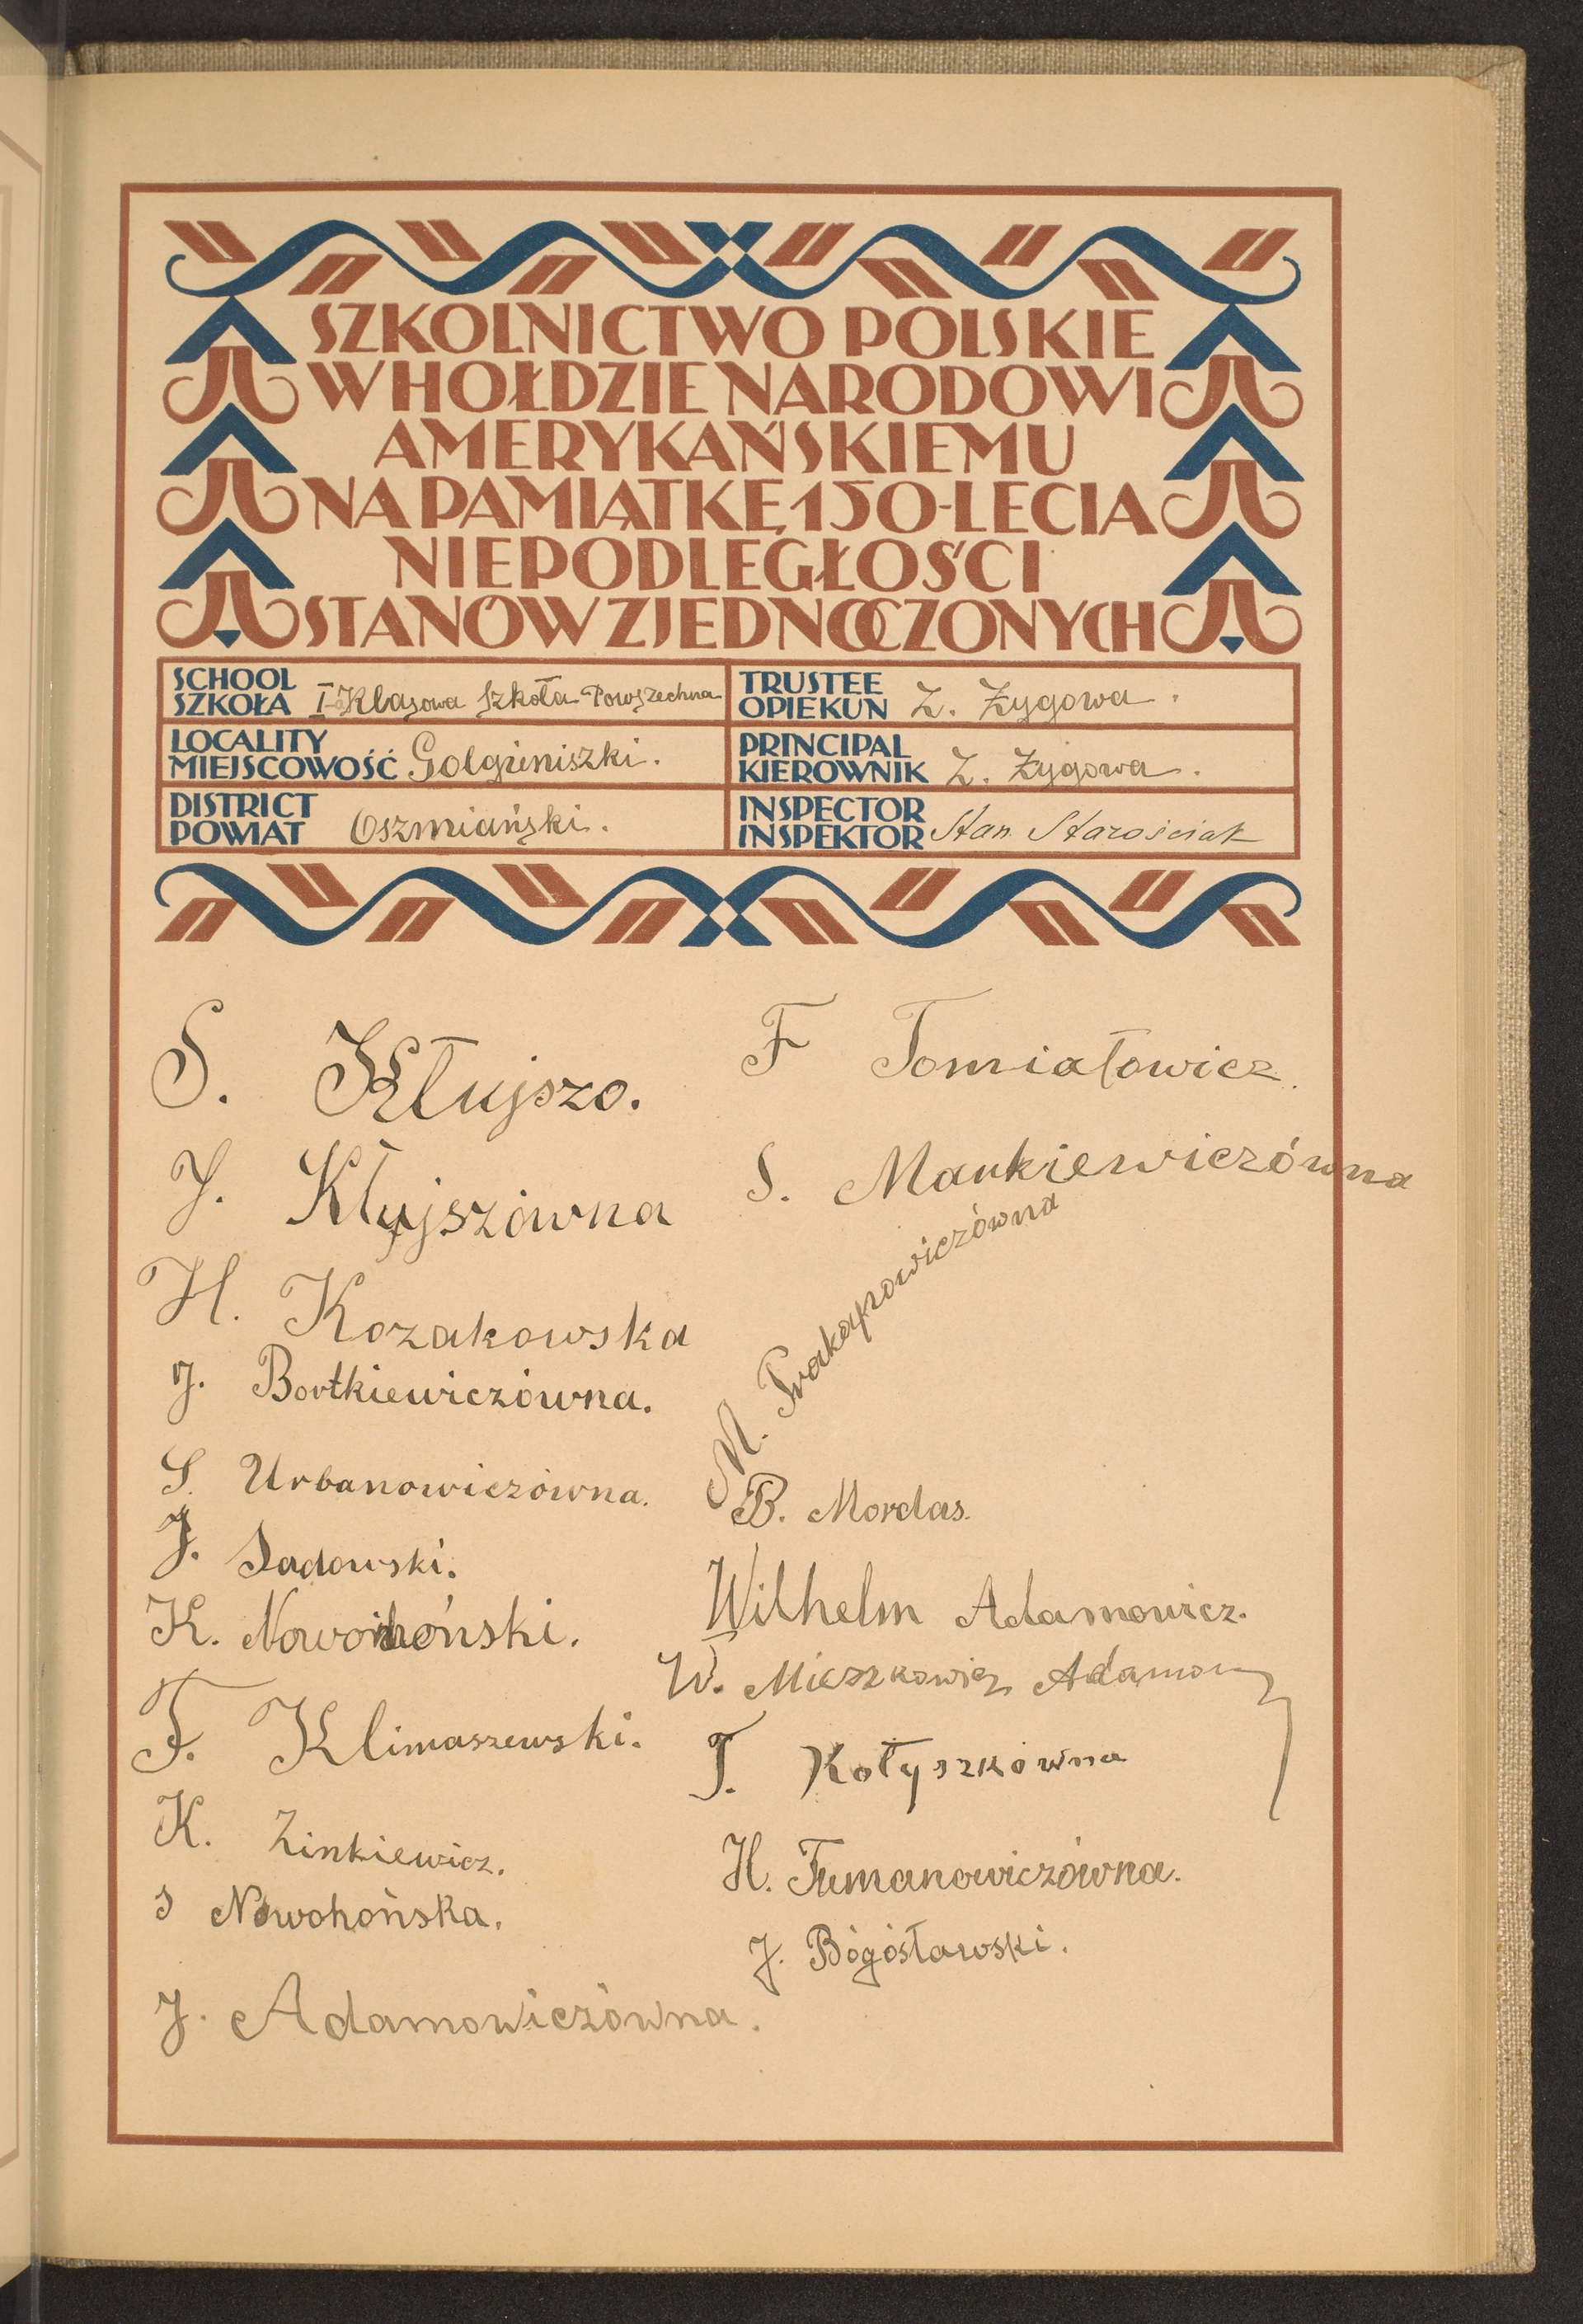 SZKOLNICTWO POLSKIE
W HOŁDZIE NARODOWI
AMERYKAŃSKIEMU
NA PAMIĄTKĘ 150-LECIA
NIEPODLEGŁOŚCI
STANÓW ZJEDNOCZONYCH
SCHOOL
SZKOŁA I Klasowa Szkoła Powszechna
LOCALITY
MIEJSCOWOŚĆ Golgieniszki.
DISTRICT
POWIAT Oszmiański.
TRUSTEE
OPIEKUN Z. Zygowa.
PRINCIPAL
KIEROWNIK Z. Zygowa.
INSPECTOR
INSPEKTOR Stan. Starościak
S. Kłujszo.
J. Kłujszówna
H. Kozakowska
J. Bortkiewiczówna.
S. Urbanowiczówna.
J. Sadowski.
K. Nowohoński.
F. Klimaszewski.
K. Zinkiewicz.
S Nowohońska.
J. Adamowiczówna.
F Tomiałowicz.
S. Mankiewiczówna
M. Prakapowiczówna
B. Mordas.
Wilhelm Adamowicz.
W. Mieszkowicz
T. Kołyszkówna
H. Tumanowiczówna.
J. Bógósławski.